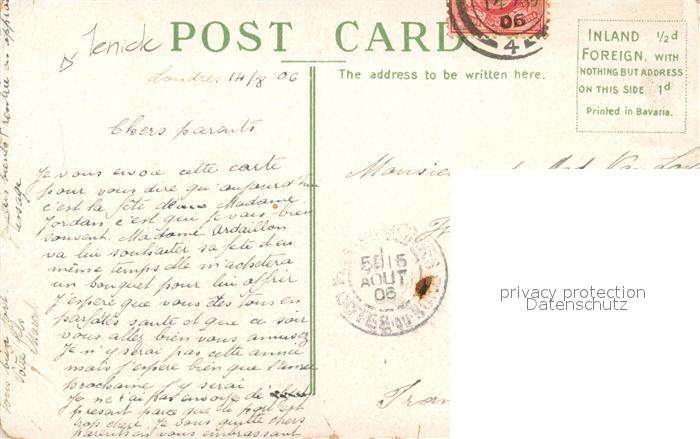 Jenick
POST CARD
14
06
4
INLAND ½d
FOREIGN, WITH
NOTHING BUT ADDRESS
ON THIS SIDE 1d
Printed in Bavaria.
The address to be written here.
Londres 14/8 06
Chers parents
Je vous envoie cette carte
pour vous dire qu'aujourd'hui
c'est la fête Madame
Jordan c'est que je vais bien
souvent. Madame Ardaillon
va lui souhaiter sa fête et en
même temps elle m'achetera
un bouquet pour lui offrir
J'espère que vous êtes tous en
parfaite santé et que ce soir
vous allez bien vous amusez
Je n'y serai pas cette année
mais j'espère bien que l'année
prochaine j'y serai
Je ne t'ai pas envoyé de
présent parce que le port est
trop chère. Je vous quitte chers
parents en vous embrassant
tous bien fort
Votre fils
Marcel
Monsieur et Mad Van
5 15
AOUT
06
privacy protection
Datenschutz